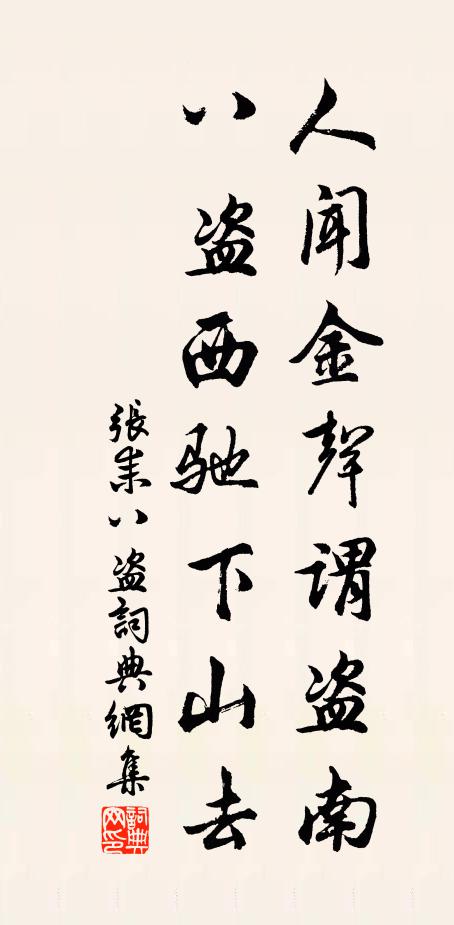 人聞金聲謂盗南
八盗西馳下山去
張耒八盗詞典網集
詞典
网印